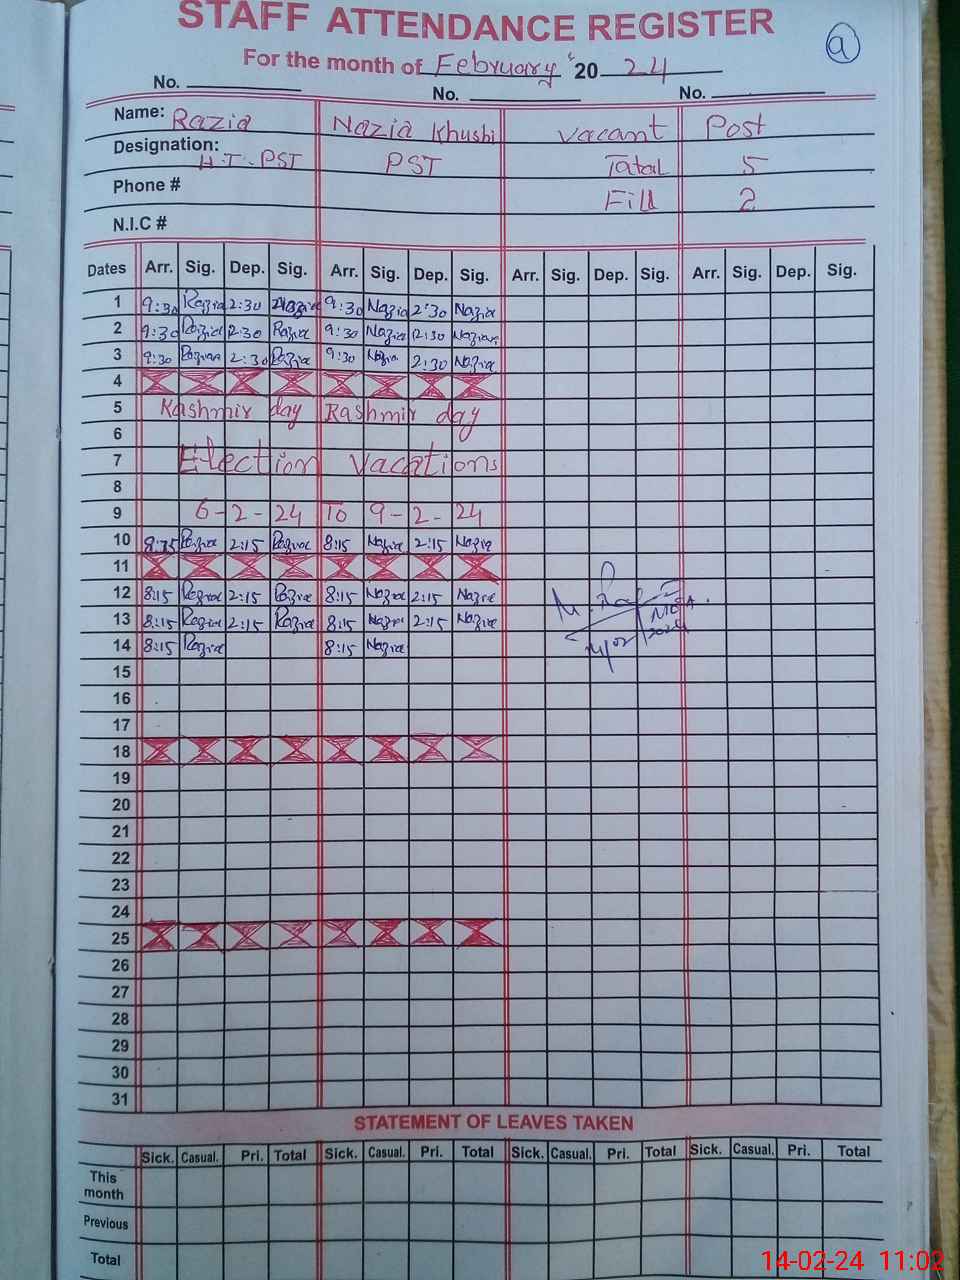 STAFF ATTENDANCE REGISTER
a
For the month of February 2024
No. No. No.
Name: Razia Nazia Khushi Vacant Post
Designation: H.T-PST PST Tatal 5
Phone # Fill 2
N.I.C #
Dates Arr. Sig. Dep. Sig. Arr. Sig. Dep. Sig. Arr. Sig. Dep. Sig. Arr. Sig. Dep. Sig.
1 9:30 Razia 2:30 Razia 9:30 Nazia 2:30 Nazia
2 9:30 Razia 2:30 Razia 9:30 Nazia 2:30 Nazia
3 9:30 Razia 2:30 Razia 9:30 Nazia 2:30 Nazia
4
5 Kashmir day Kashmir day
6
7 Election Vacations
8
9 6-2-24 To 9-2-24
10 8:15 Razia 2:15 Razia 8:15 Nazia 2:15 Nazia
11
12 8:15 Razia 2:15 Razia 8:15 Nazia 2:15 Nazia
13 8:15 Razia 2:15 Razia 8:15 Nazia 2:15 Nazia
14 8:15 Razia 8:15 Nazia
15
16
17
18
19
20
21
22
23
24
25
26
27
28
29
30
31
STATEMENT OF LEAVES TAKEN
Sick. Casual. Pri. Total Sick. Casual. Pri. Total Sick. Casual. Pri. Total Sick. Casual. Pri. Total
This month
Previous
Total
14-02-24 11:02